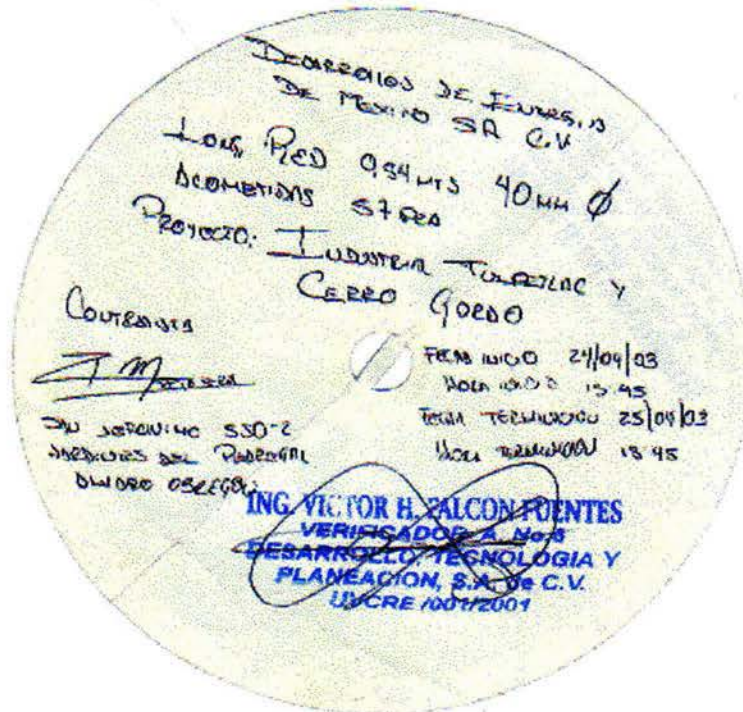 DESARROLLOS DE ENERGIA
DE MEXICO SA C.V
LONG RED 0,54 MTS 40 MM Ø
ACOMETIDAS 57 PZA
PROYECTO: INDUSTRIA TULPETLAC Y
CERRO GORDO
CONTRATISTA
SAN JERONIMO 550-2
JARDINES DEL PEDREGAL
ALVARO OBREGON
FECHA INICIO 24/04/03
HORA INICIO 15 45
FECHA TERMINACION 25/04/03
HORA TERMINACION 15 45
ING. VICTOR H. FALCON FUENTES
VERIFICADOR A No.
DESARROLLO TECNOLOGIA Y
PLANEACION, S.A. de C.V.
UVCRE /001/2001